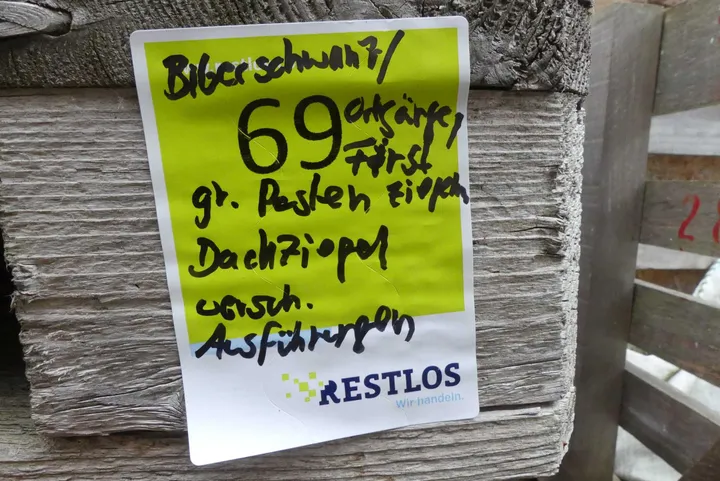 Biberschwanz/
69 Ortgänge,
First
gr. Posten Ziegeln
Dachziegel
versch.
Ausführungen
RESTLOS
Wir handeln.